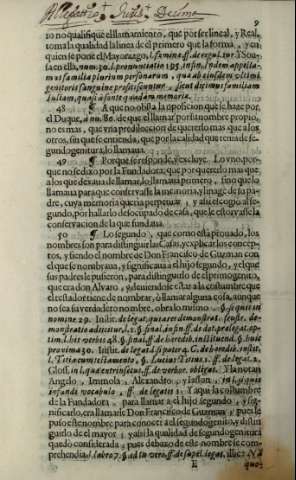 9
to no qualifique el llamamiento, que por ser lineal, y Real,
toma la qualidad la linea de el primero que la forma, y en
quien se pone el Mayorazgo l. fœminæ ff. de regul. iur. Y Sou-
sa en ella, num. 30. l. pronuntiatio 195. in fin. ibi
mus familia plurium personarum, quæ ab eiusdem ultimi
genitoris sanguine proficiscuntur, sicut dicimus familiam
Iuliam, quasi à fonte quodam memoriæ.
48 ¶ A que no obsta la oposicion que se haze por
el Duque, à nu. 80. de que el llamar por su nombre propio,
no es mas, que vna predileccion de quererlo mas que a los
otros, sin que se entienda, que por la calidad que tenia de se-
gundogenitura, lo llamara.
49 ¶ Porque se responde, y excluye. Lo vno, por-
que no se dixo por la Fundadora, que por quererlo mas que
a los que dexaua de llamar, lo llamaua primero, sino que lo
llamaua para que conservasse la memoria, y linage de su pa-
dre, cuya memoria queria perpetuar, y assi escogio al se-
gundo, por hallarlo desocupado de casa, que le estoruasse la
conservacion de la que fundaua.
50 ¶ Lo segundo, que como està prouado, los
nombres son para distinguir las Casas, y explicar los concep-
tos, y siendo el nombre de Don Francisco de Guzman con
el que se nombraua, y significaua a el hijo segundo, y el que
sus padres le pusieron, para distinguirlo de el primogenito,
que era don Alvaro, deuiendose estar a la costumbre que
el testador tiene de nombrar, ò llamar alguna cosa, aunque
no sea su verdadero nombre, obra lo mismo. §. si quis in
nomine 29. Instit. de legat.
monstratio adiicitur, l. 1. §. final. in fin. ff. de dot. præleg.
tim. l. his verbis 48. §. final. ff. de hæredib. instituend. §. huic
proxima 30. Instit. de legat.
l. Titia cum testamento, §. Lucius Titius 1. ff. de legat. 2.
Gloss. in l.
Angelo, Immola, Alexandro, y Iasson,
infundi vocabulo, ff. de legatis 1. Y aqui la costumbre
de la Fundadora para llamar a el hijo segundo, y sig-
nificarlo, era llamarle Don Francisco de Guzman, y pues le
puso este nombre para conocer a el segundogenito, y distin-
guirlo de el mayor; y assi la qualidad de segundogenitura
quedò considerada, pues debaxo de este nombre se com-
prehendia
E
quos